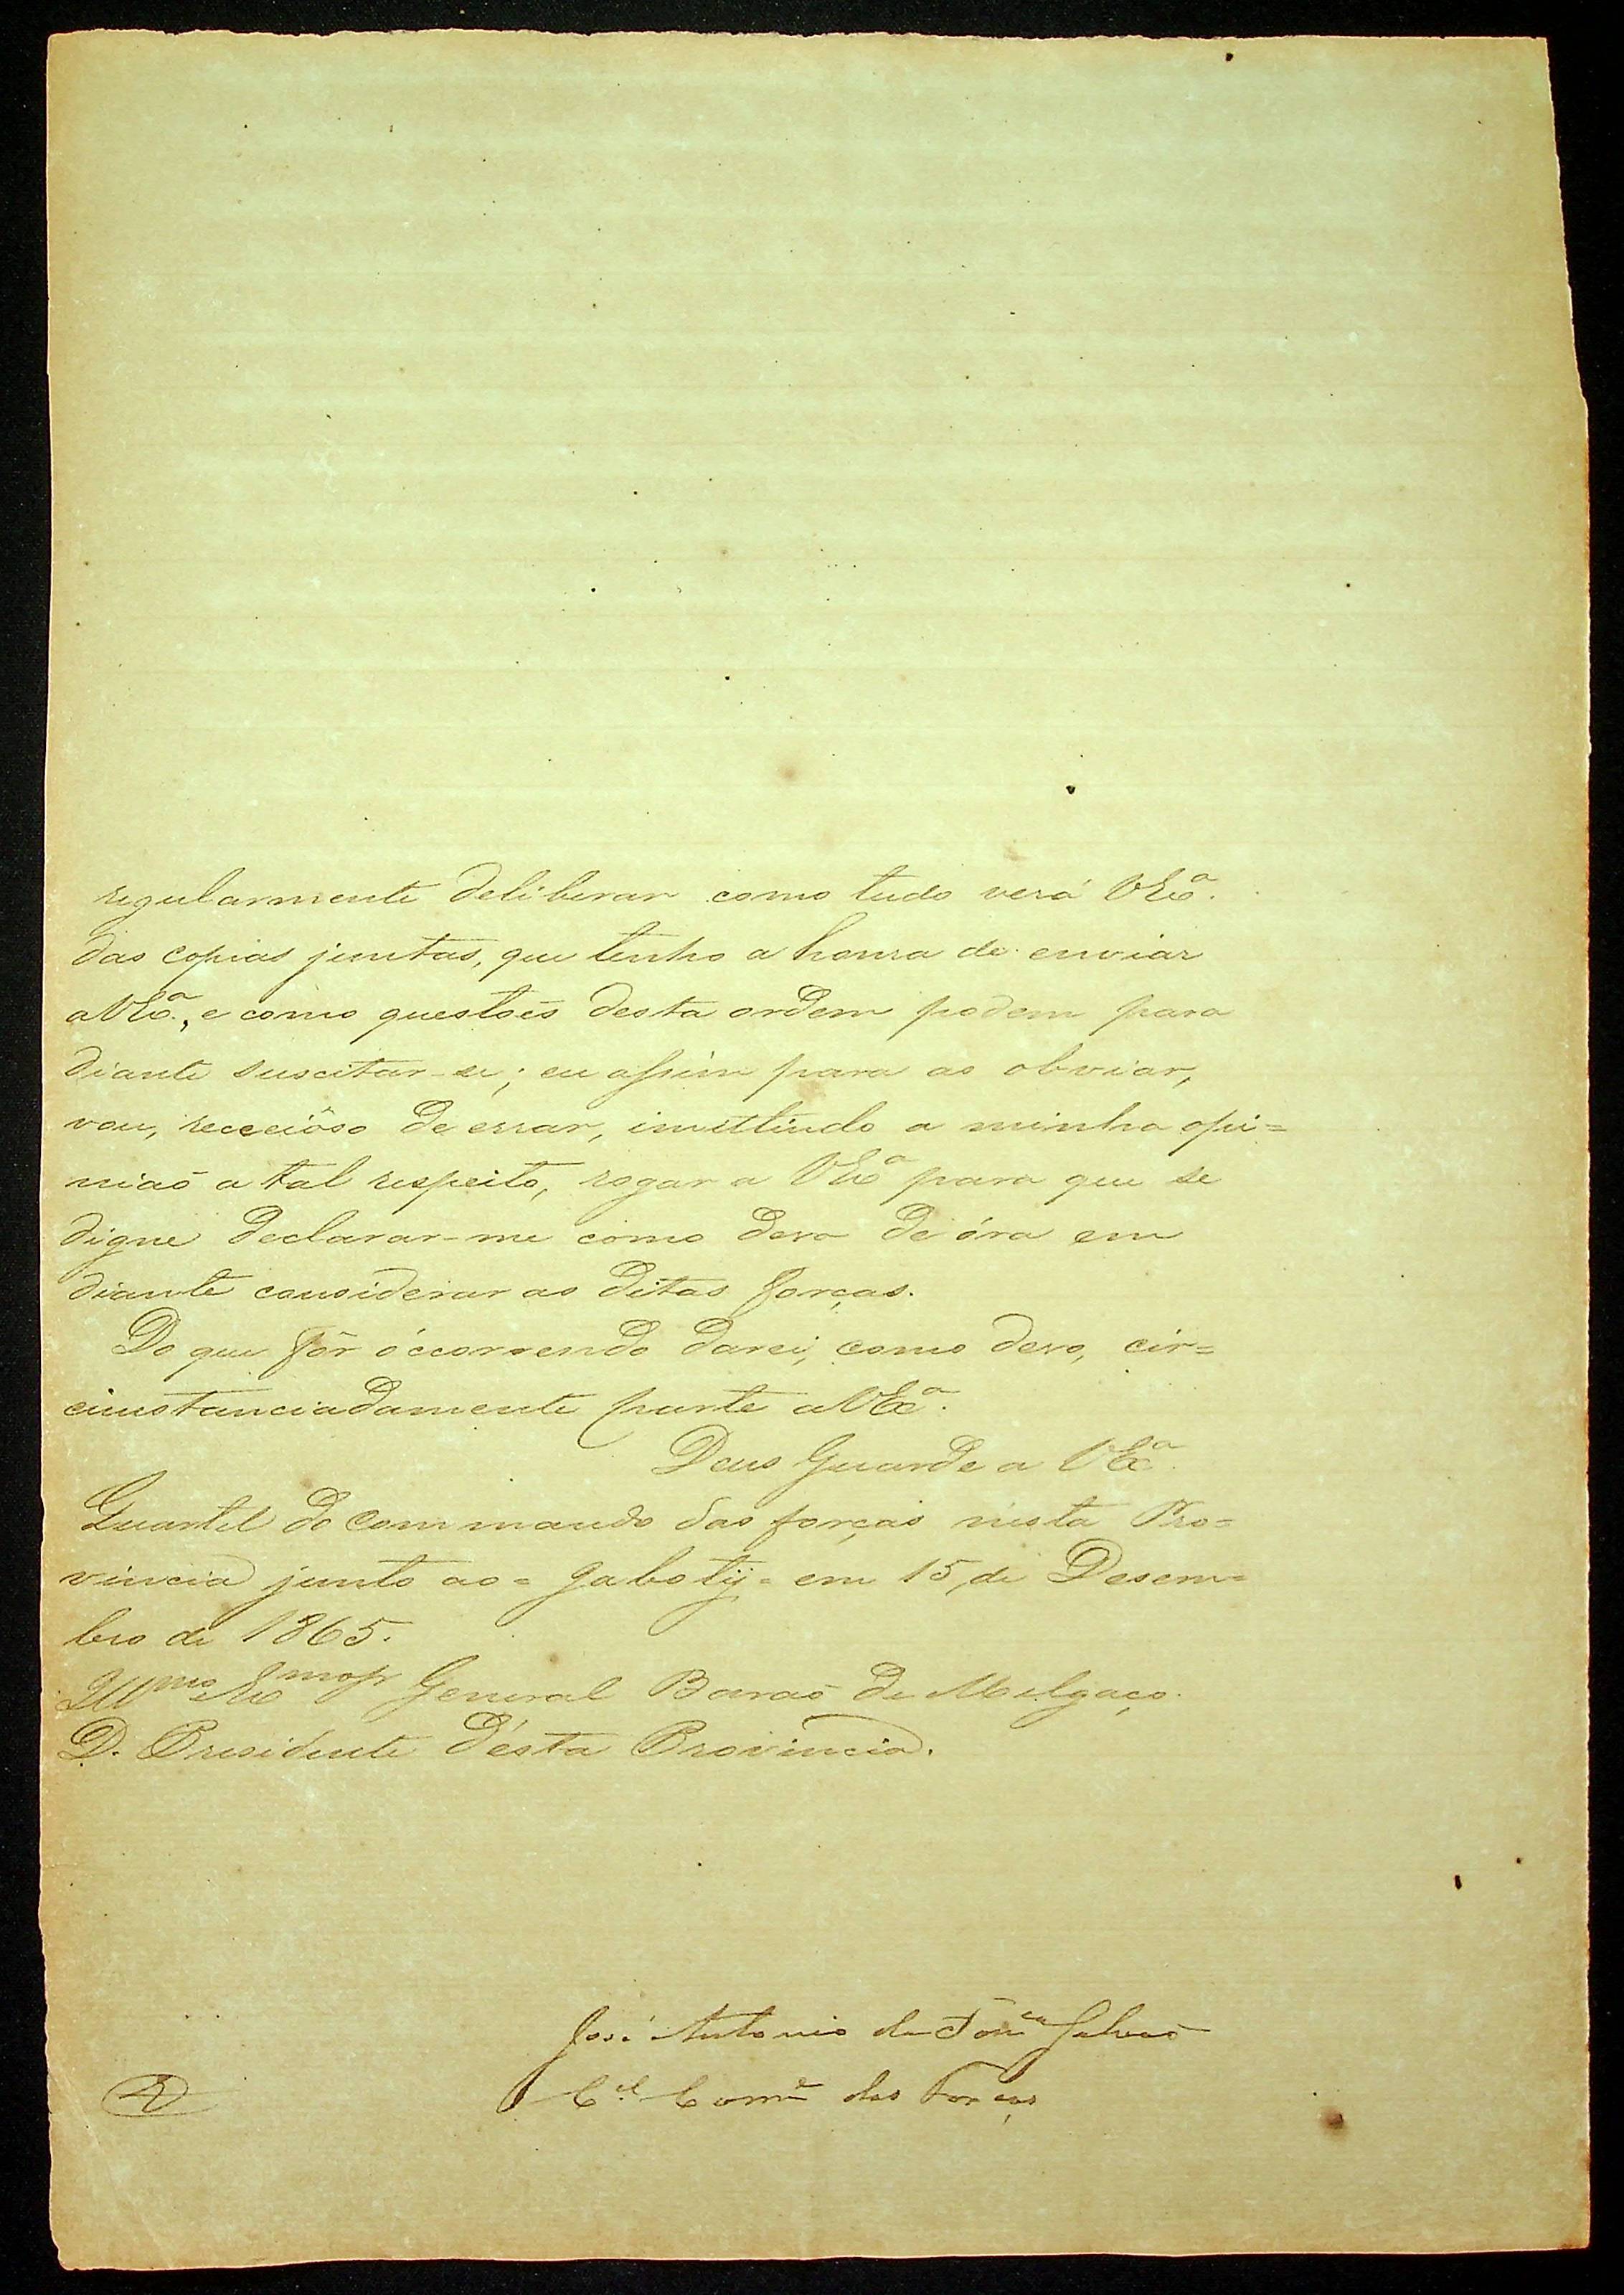 regularmente deliberar como tudo verá VExª.
das copias juntas, que tenho a honra de enviar
a VExª., e como questoẽs desta ordem podem para
diante suscitar-se; eu assim para as obviar,
vou, receciôso de errar, imittindo a minha opi=
niaõ a tal respeito, rogar a VExª para que se
digne declarar-me como devo de óra em
diante considerar as ditas forças.
Do que fôr óccorrendo darei, como devo, cir=
cunstanciadamente parte a VExª.
Deus Guarde a VExª.
Quartel do Commando das forças nesta Pro=
vincia junto ao = Jabotÿ = em 15, de Desem=
bro de 1865.
Illmo Exmo Sr General Baraõ de Melgaço.
D. Presidente d'ésta Provincia.
José Antonio da Fonca Galvaõ
Cel Come das Forças